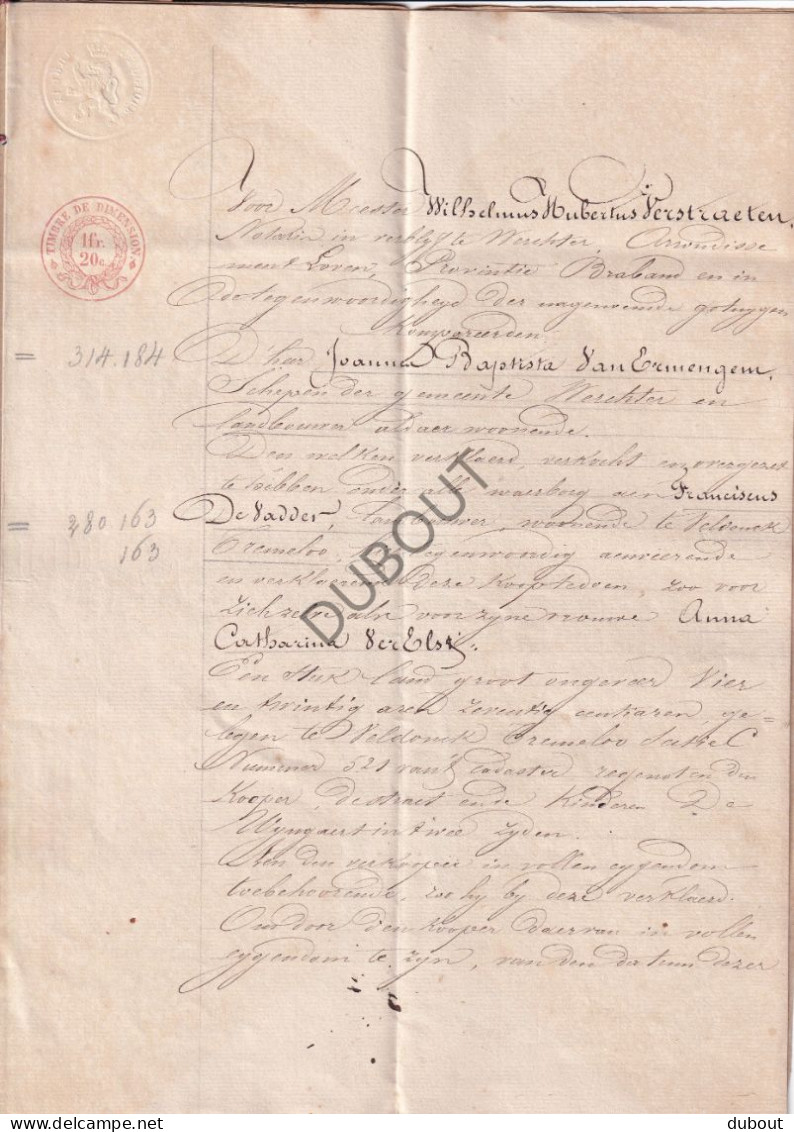 TIMBRE DE DIMENSION
1fr.
20c.
Voor Meester Wilhelmus Hubertus Verstraeten,
Notaris in verblyf te Werchter, Arrondisse
ment Loven, Provintie Braband en in
de tegenwoordigheyd der nagenoemde getuygen
Kompareerden
= 314.184
D'heer Joannes Baptista Van Ermengem,
Schepen der gemeente Werchter en
landbouwer aldaer woonende.
Den welken verklaerd, verkocht en overgezet
te hebben onder alle waerborg aen Franciscus
= 280 163
163
De Vadder, landbouwer, woonende te Veldonck
Tremeloo, tegenwoordig aenveerende
en verklaerende deze koop te doen, zoo voor
zich zelve als voor zyne vrouwe Anna
Catharina VerElst.
Een stuk land groot ongeveer Vier
en twintig aren zeventig centiaren, ge=
legen te Veldonck Tremeloo Sectie C
Nummer 521 van't Cadaster regenoten den
Kooper, de straet ende Kinderen De
Wyngaert in twee zyden.
Aen den verkooper in vollen eygendom
toebehoorende, zoo hy by deze verklaerd.
Om door den kooper daervan in vollen
eygendom te zyn, van den datum dezer
DUBOUT
dubout
delcampe.net